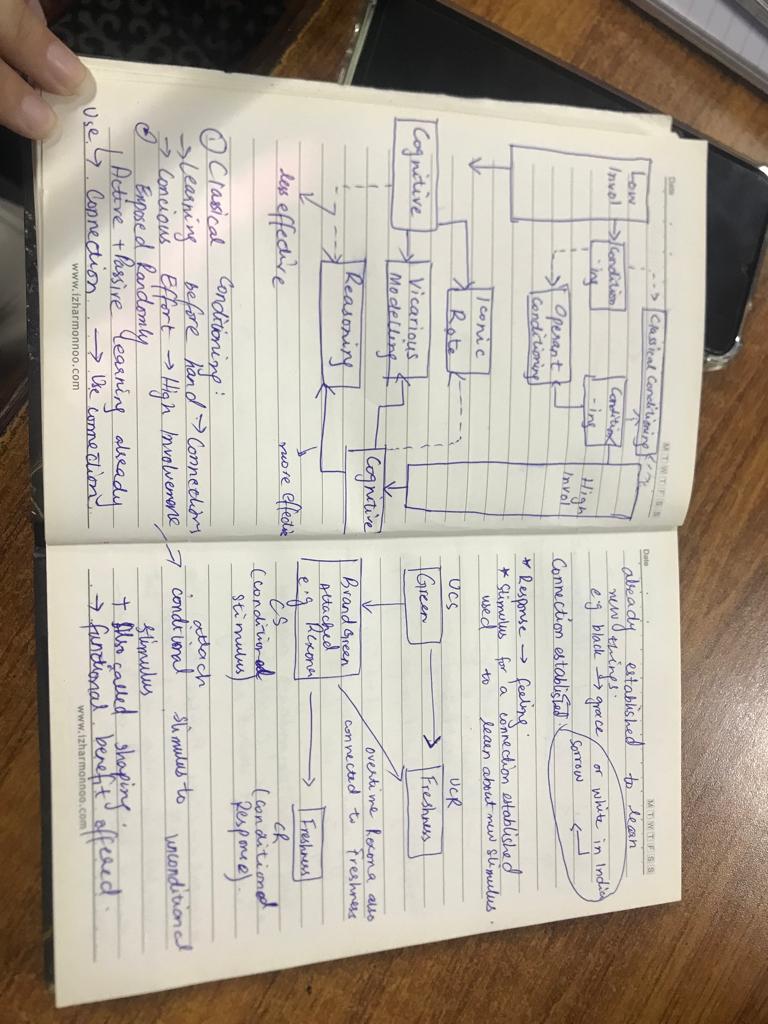 Date
M T W T F S S
Classical Conditioning
Low
Invol
Condition
ing
Condition
-ing
High
Invol
Operant
Conditioning
Iconic
Rote
Cognitive
Vicarious
Modelling
Cognitive
Reasoning
less effective
more effective
① Classical Conditioning:
→ Learning before hand → Connections
→ Concious Effort → High Involvement
② Exposed Randomly
Active + Passive learning already
Use → Connection → Use connection
www.izharmonnoo.com
Date
M T W T F S S
already established to learn
new things.
e.g black → grace or white in India
sorrow ←
Connection established
* Response → feeling.
* Stimulus for a connection established
used to learn about new stimulus.
UCS UCR
Green → Freshness
overtime Rexona also
connected to Freshness
Brand Green
Attached
e.g Rexona → Freshness
CS CR
(conditioned
stimulus)
(conditioned
Response).
attach
conditional stimulus to unconditional
stimulus
+ Also called shaping.
→ functional benefit offered.
www.izharmonnoo.com